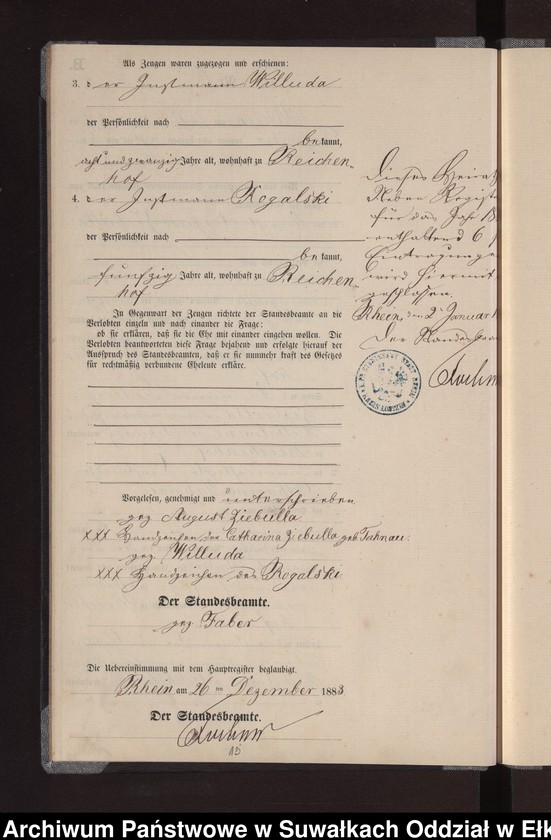 Als Zeugen waren zugezogen und erschienen:
3. der Instmann Willuda
der Persönlichkeit nach
bekannt,
acht und zwanzig Jahre alt, wohnhaft zu Reichen-
hof
4. der Instmann Rogalski
der Persönlichkeit nach
bekannt,
fünfzig Jahre alt, wohnhaft zu Reichen-
hof
In Gegenwart der Zeugen richtete der Standesbeamte an die
Verlobten einzeln und nach einander die Frage:
ob sie erklären, daß sie die Ehe mit einander eingehen wollen. Die
Verlobten beantworteten diese Frage bejahend und erfolgte hierauf der
Ausspruch des Standesbeamten, daß er sie nunmehr kraft des Gesetzes
für rechtmäßig verbundene Eheleute erkläre.
Vorgelesen, genehmigt und unterschrieben
gez August Ziebulla
XXX Handzeichen der Catharina Ziebulla geb.
gez Willuda
XXX Handzeichen des Rogalski
Der Standesbeamte.
gez Faber
Die Uebereinstimmung mit dem Hauptregister beglaubigt.
Rhein am 26 ten Dezember 1883
Der Standesbeamte.
Dieses Heirat
Neben Regist
für das Jahr 18
enthaltend 6
Eintragunge
wird hiermit
geschlossen.
Rhein, den 2 Januar 1
Der Standesbeam
Archiwum Państwowe w Suwałkach Oddział w Ełk